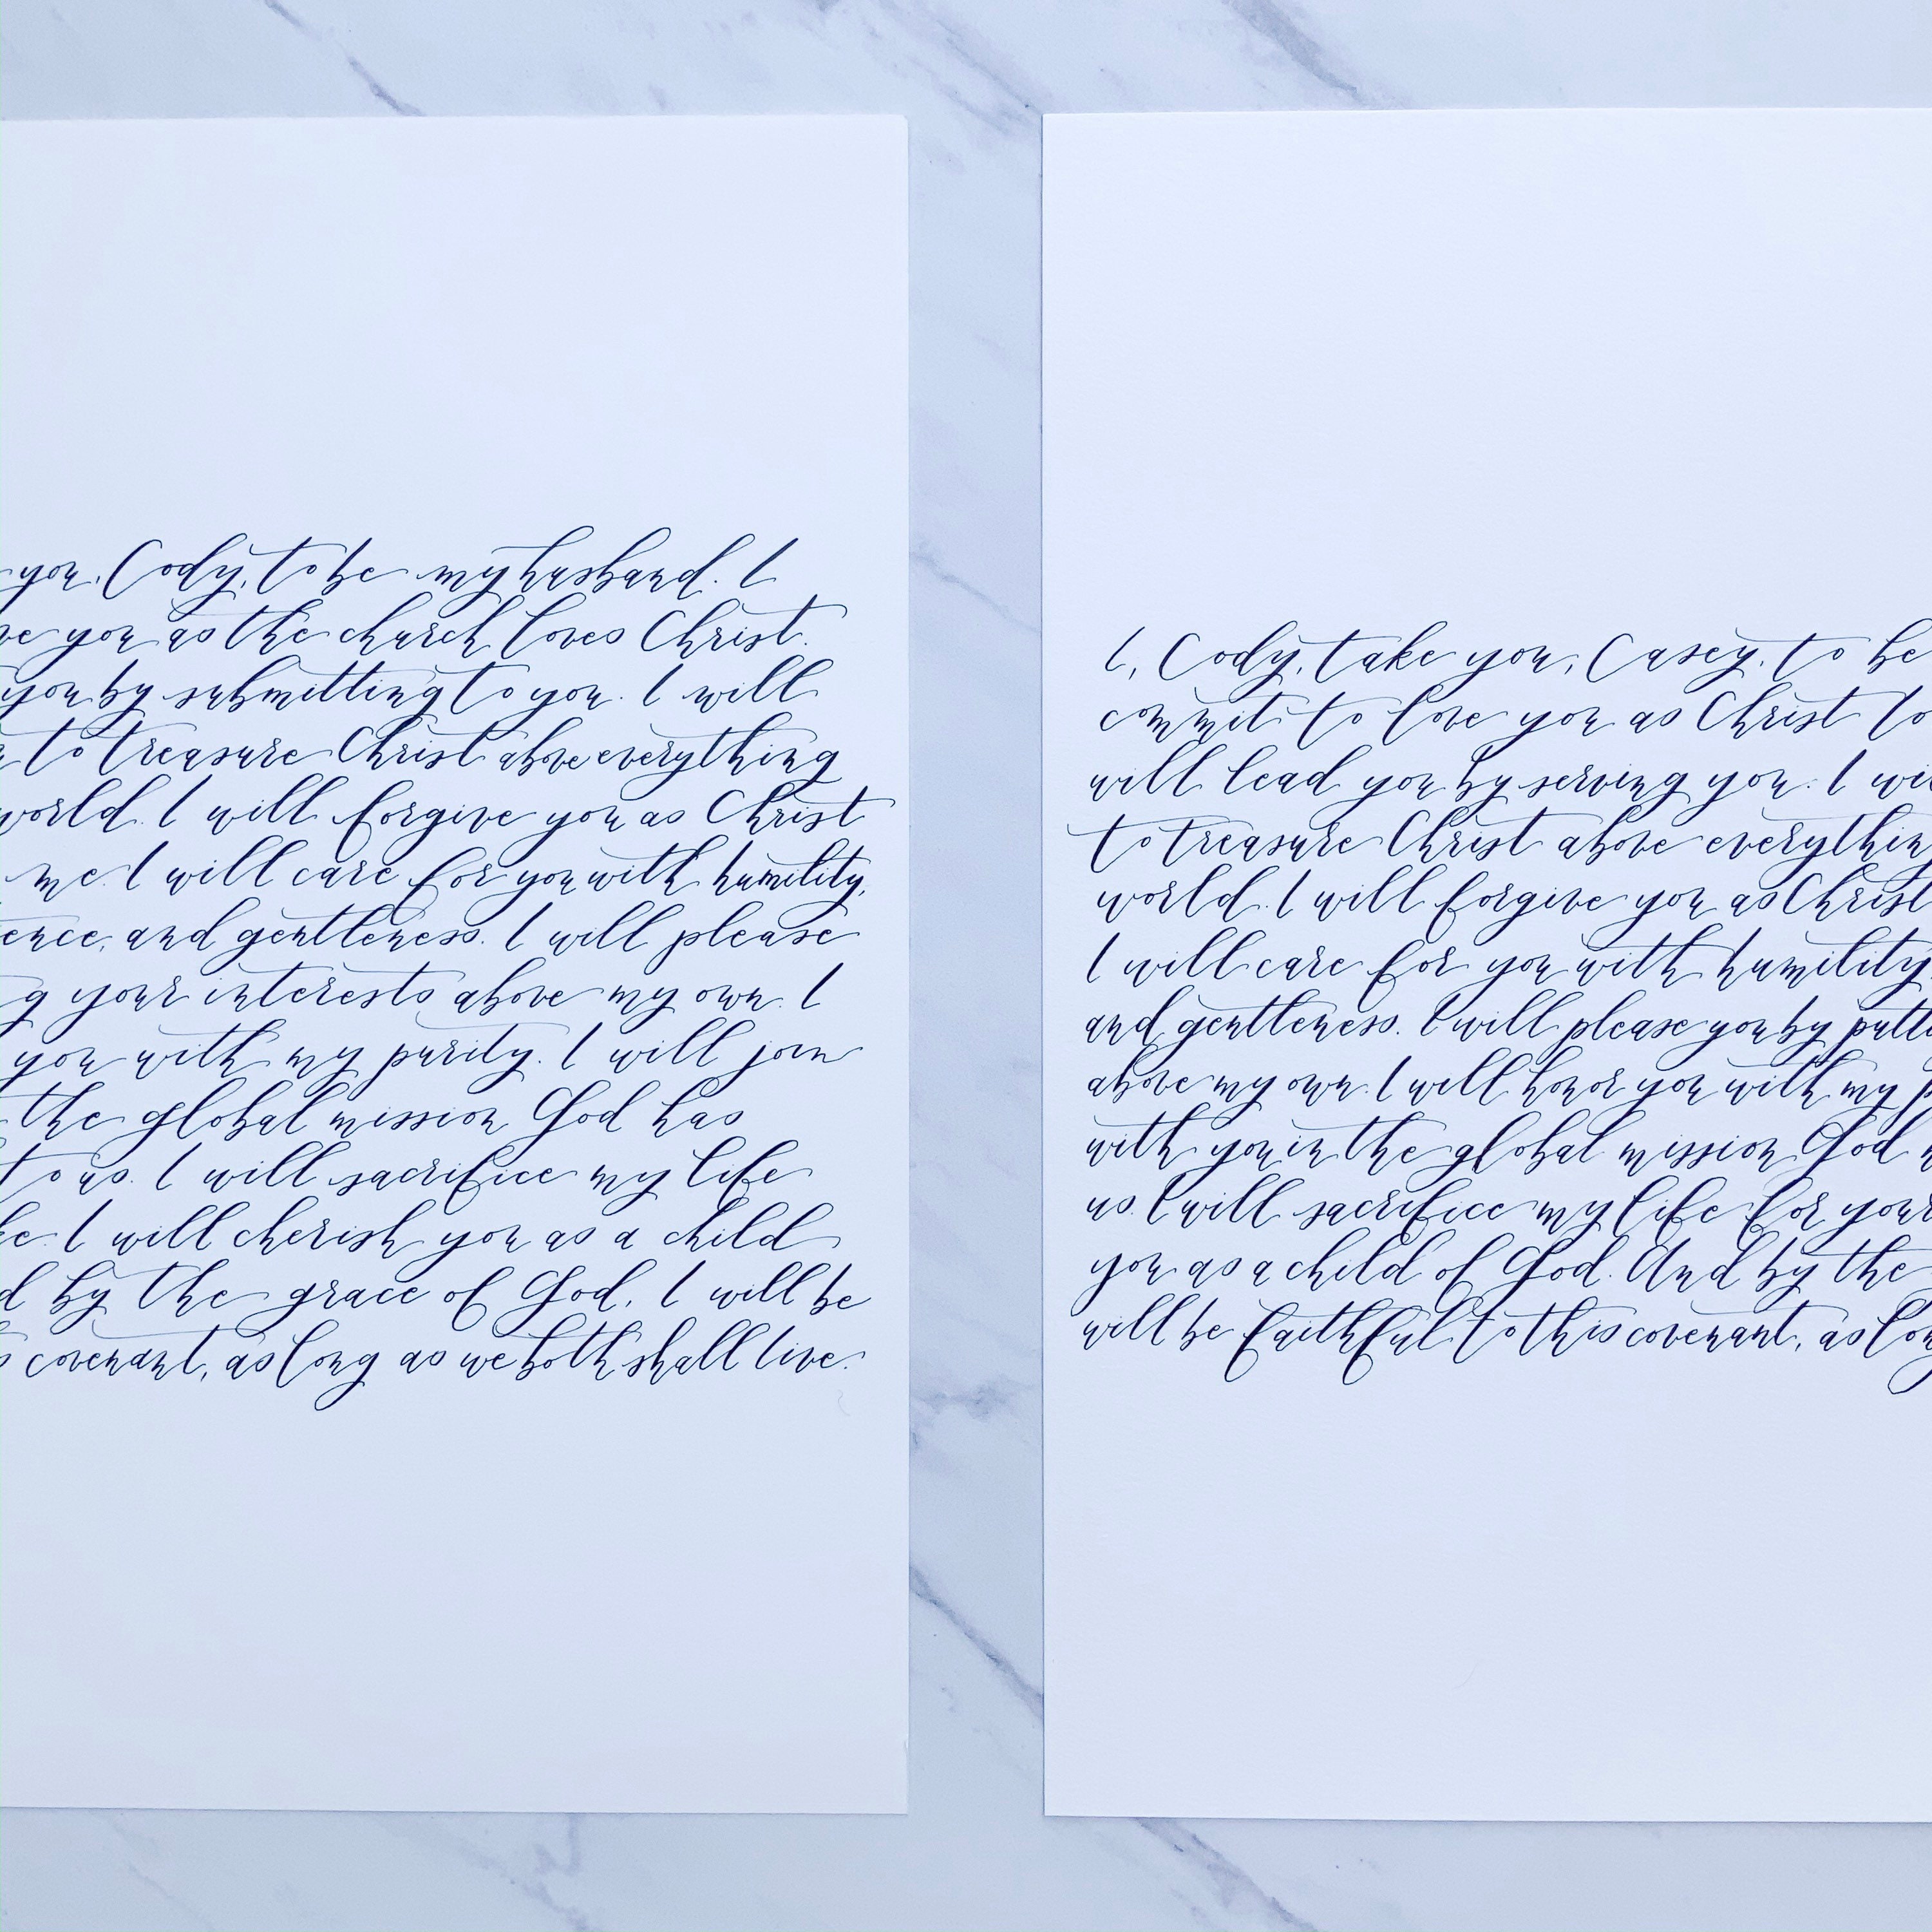 you, Cody, to be my husband. I
you as the church loves Christ.
you by submitting to you. I will
to treasure Christ above everything
world. I will forgive you as Christ
me. I will care for you with humility,
and gentleness. I will please
your interests above my own. I
you with my purity. I will join
the global mission God has
to us. I will sacrifice my life
I will cherish you as a child
by the grace of God, I will be
covenant, as long as we both shall live.
I, Cody, take you, Casey, to be
commit to love you as Christ
will lead you by serving you. I
to treasure Christ above everything
world. I will forgive you as Christ
I will care for you with humility,
and gentleness. I will please you by
above my own. I will honor you with my
with you in the global mission God
us. I will sacrifice my life for your
you as a child of God. And by the
will be faithful to this covenant, as long